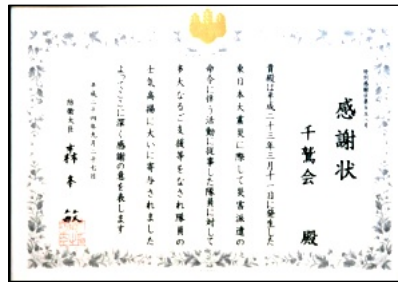 感謝状
千鷲会 殿
貴殿は平成二十三年三月十一日に発生した
東日本大震災に際して災害派遣の
命令に伴う活動に従事した隊員に対して
多大なるご支援等をなされ隊員の
士気高揚に大いに寄与されました
よってここに深く感謝の意を表します
平成二十四年九月二十七日
防衛大臣 森本 敏